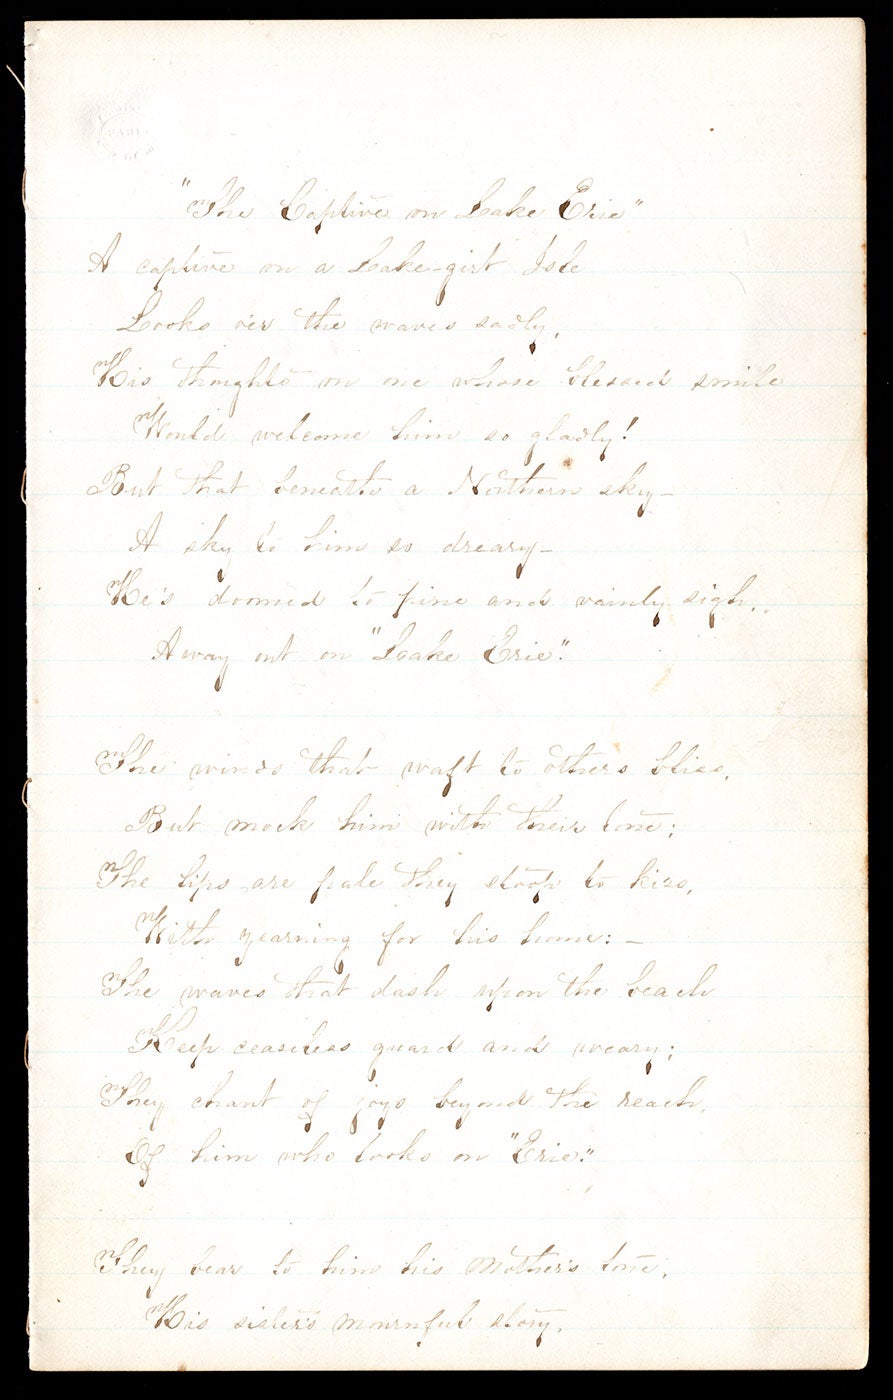 "The Captive on Lake Erie"
A captive on a Lake-girt Isle
Looks o'er the waves sadly,
His thoughts on one whose blessed smile
Would welcome him so gladly!
But that beneath a Northern sky—
A sky to him so dreary—
He's doomed to pine and vainly sigh..
Away out on "Lake Erie".
The winds that waft to others bliss,
But mock him with their tone;
The lips are pale they stoop to kiss,
With yearning for his home: —
The waves that dash upon the beach
Keep ceaseless guard and weary;
They chant of joys beyond the reach,
Of him who looks on "Erie".
They bear to him his Mother's tone,
His sister's mournful story,